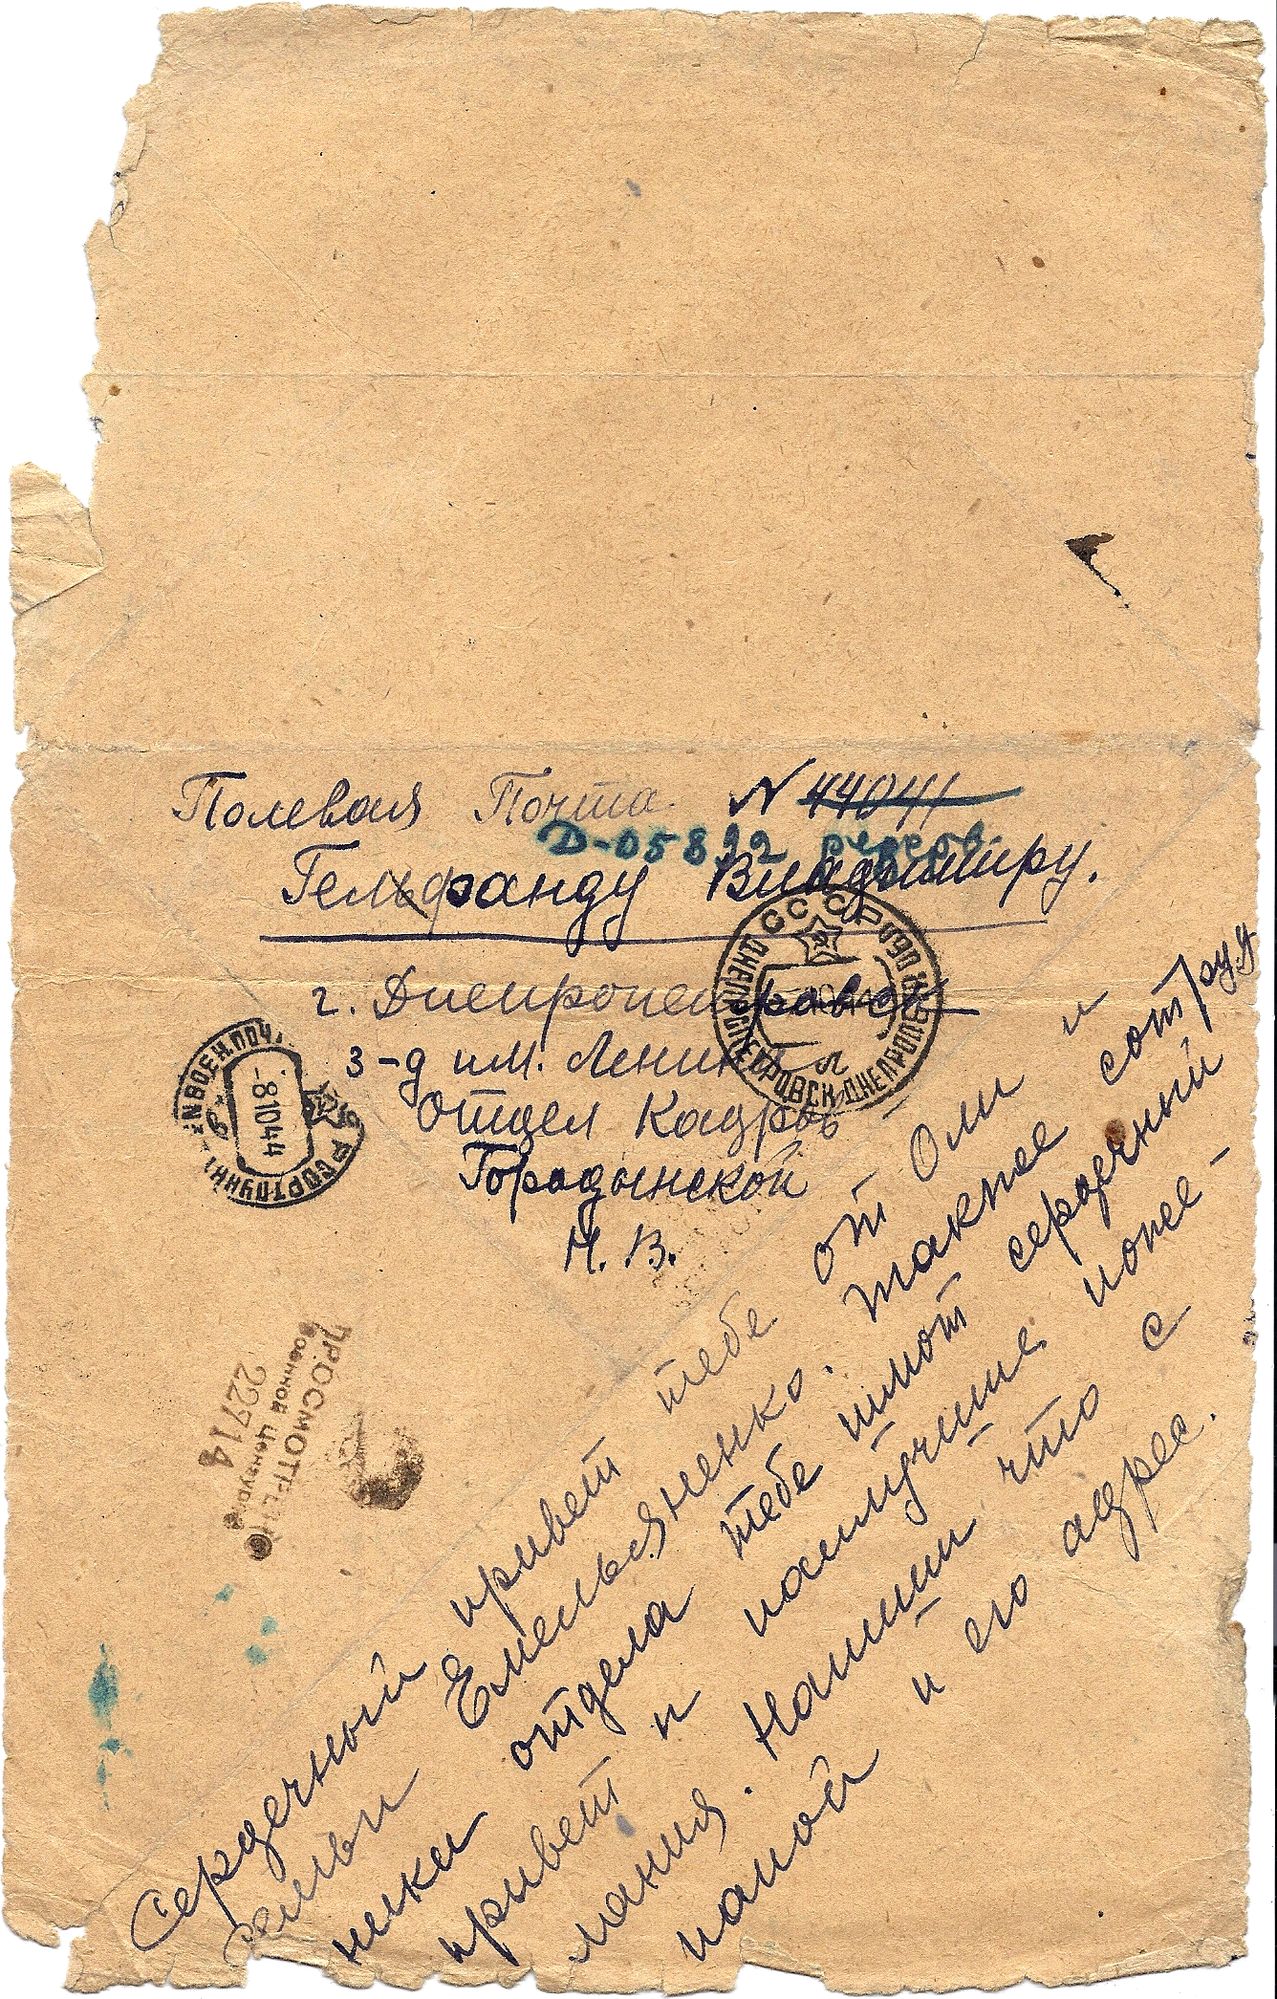 Полевая Почта N 44041
Д-05822
Гельфанду Владимиру.
г. Днепропетровск
з-д им. Ленина
отдел Кадров
Городынской
Н. В.
СССР
ДНЕПРОПЕТРОВСК ДНЕПР. ОБЛ.
ВОЕН. ПОЧ.
-81044
СОРТ. ПУНКТ
ПРОСМОТРЕНО
Военной Цензурой
22714
Сердечный привет тебе от Оли и
семьи Емельяненко. также сотруд
ники отдела тебе шлют сердечный
привет и наилучшие поже-
лания. Напиши что с
папой и его адрес.